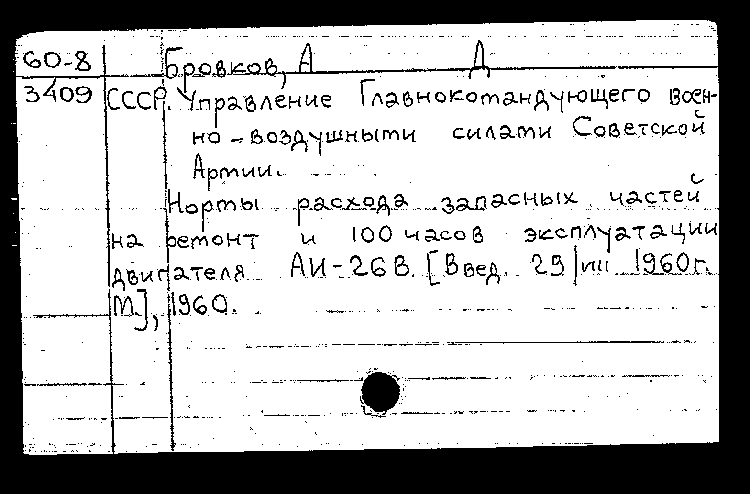 60-8 Бровков, А Д
3409 СССР. Управление Главнокомандующего воен-
но-воздушными силами Советской
Армии.
Нормы расхода запасных частей
на ремонт и 100 часов эксплуатации
двигателя АИ-26В. [Введ. 29/III 1960г.
М.], 1960.